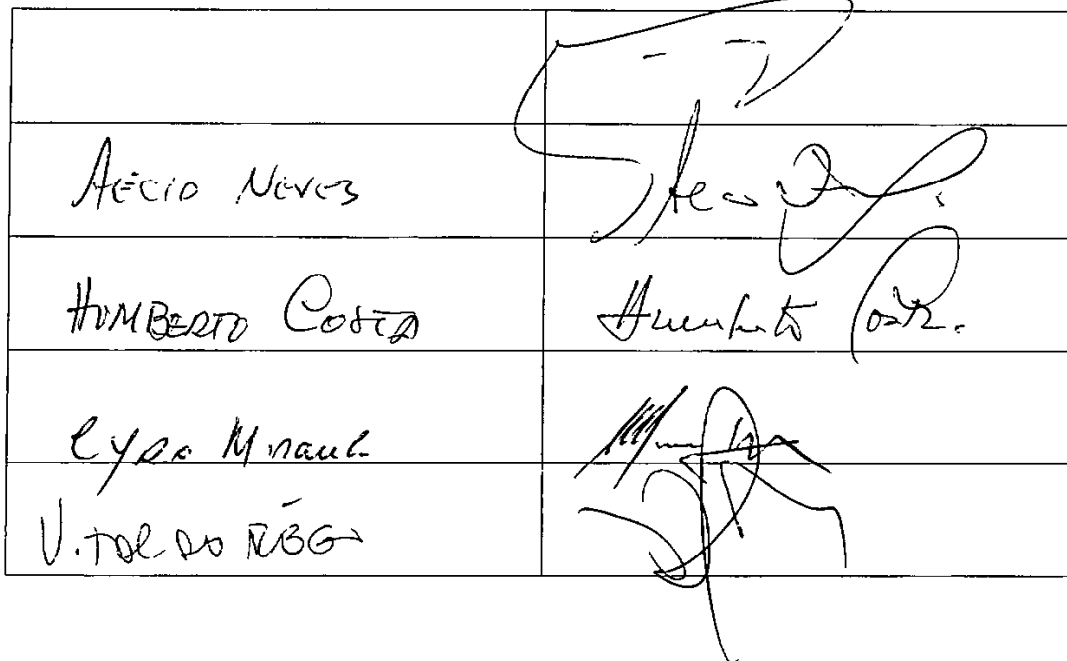 AÉCIO NEVES
HUMBERTO COSTA Humberto Costa
Cyro Miranda
VITAL DO RÊGO